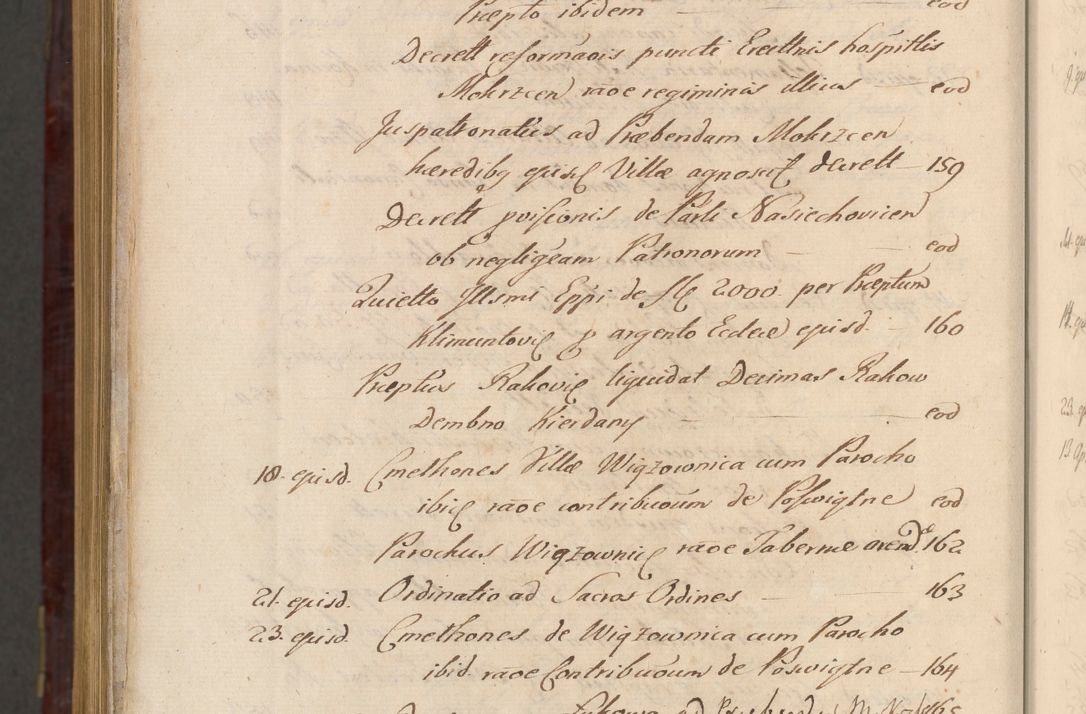 Præpto ibidem — eod
Decrett reformãois puncti Erecttnis hospitlis
Mokrzcen rãoe regiminas illius — eod
Juspatronatus ad Præbendam Mokrzcen
hæredibq episd Villæ agnoscit decrett — 159
Decrett pvisionis de Parli Nasiechovicien
ob negligẽam Patronorum — eod
Quietto Illsmi Eppi de fl 2000 per Præptum
Klimuntovie p argento Eccleæ episd. — 160
Præptus Rakovie liquidat Decimas Rakow
Dembno Kierdany — eod
18. episd. Cmethones Villæ Wiązownica cum Parocho
ibid rãoe contribuõum de Poswiętne eod
Parochus Wiązownic rãoe Tabernæ arend. 162
21. episd. Ordinatio ad Sacros Ordines — 163
23. episd. Cmethones de Wiązownica cum Parocho
ibid rãoe Contribuõum de Poswiętne — 164
ad